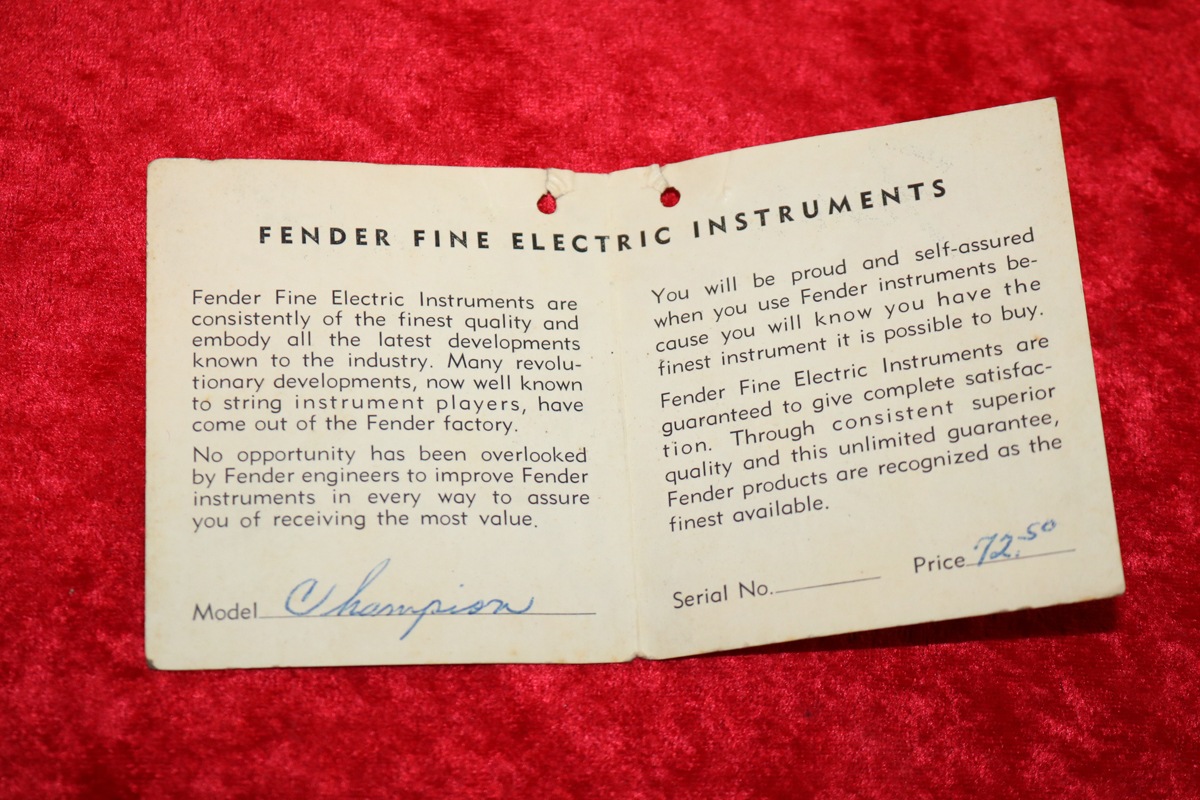 FENDER FINE ELECTRIC INSTRUMENTS
Fender Fine Electric Instruments are
consistently of the finest quality and
embody all the latest developments
known to the industry. Many revolu-
tionary developments, now well known
to string instrument players, have
come out of the Fender factory.
No opportunity has been overlooked
by Fender engineers to improve Fender
instruments in every way to assure
you of receiving the most value.
Model Champion
You will be proud and self-assured
when you use Fender instruments be-
cause you will know you have the
finest instrument it is possible to buy.
Fender Fine Electric Instruments are
guaranteed to give complete satisfac-
tion. Through consistent superior
quality and this unlimited guarantee,
Fender products are recognized as the
finest available.
Serial No. Price 72.50